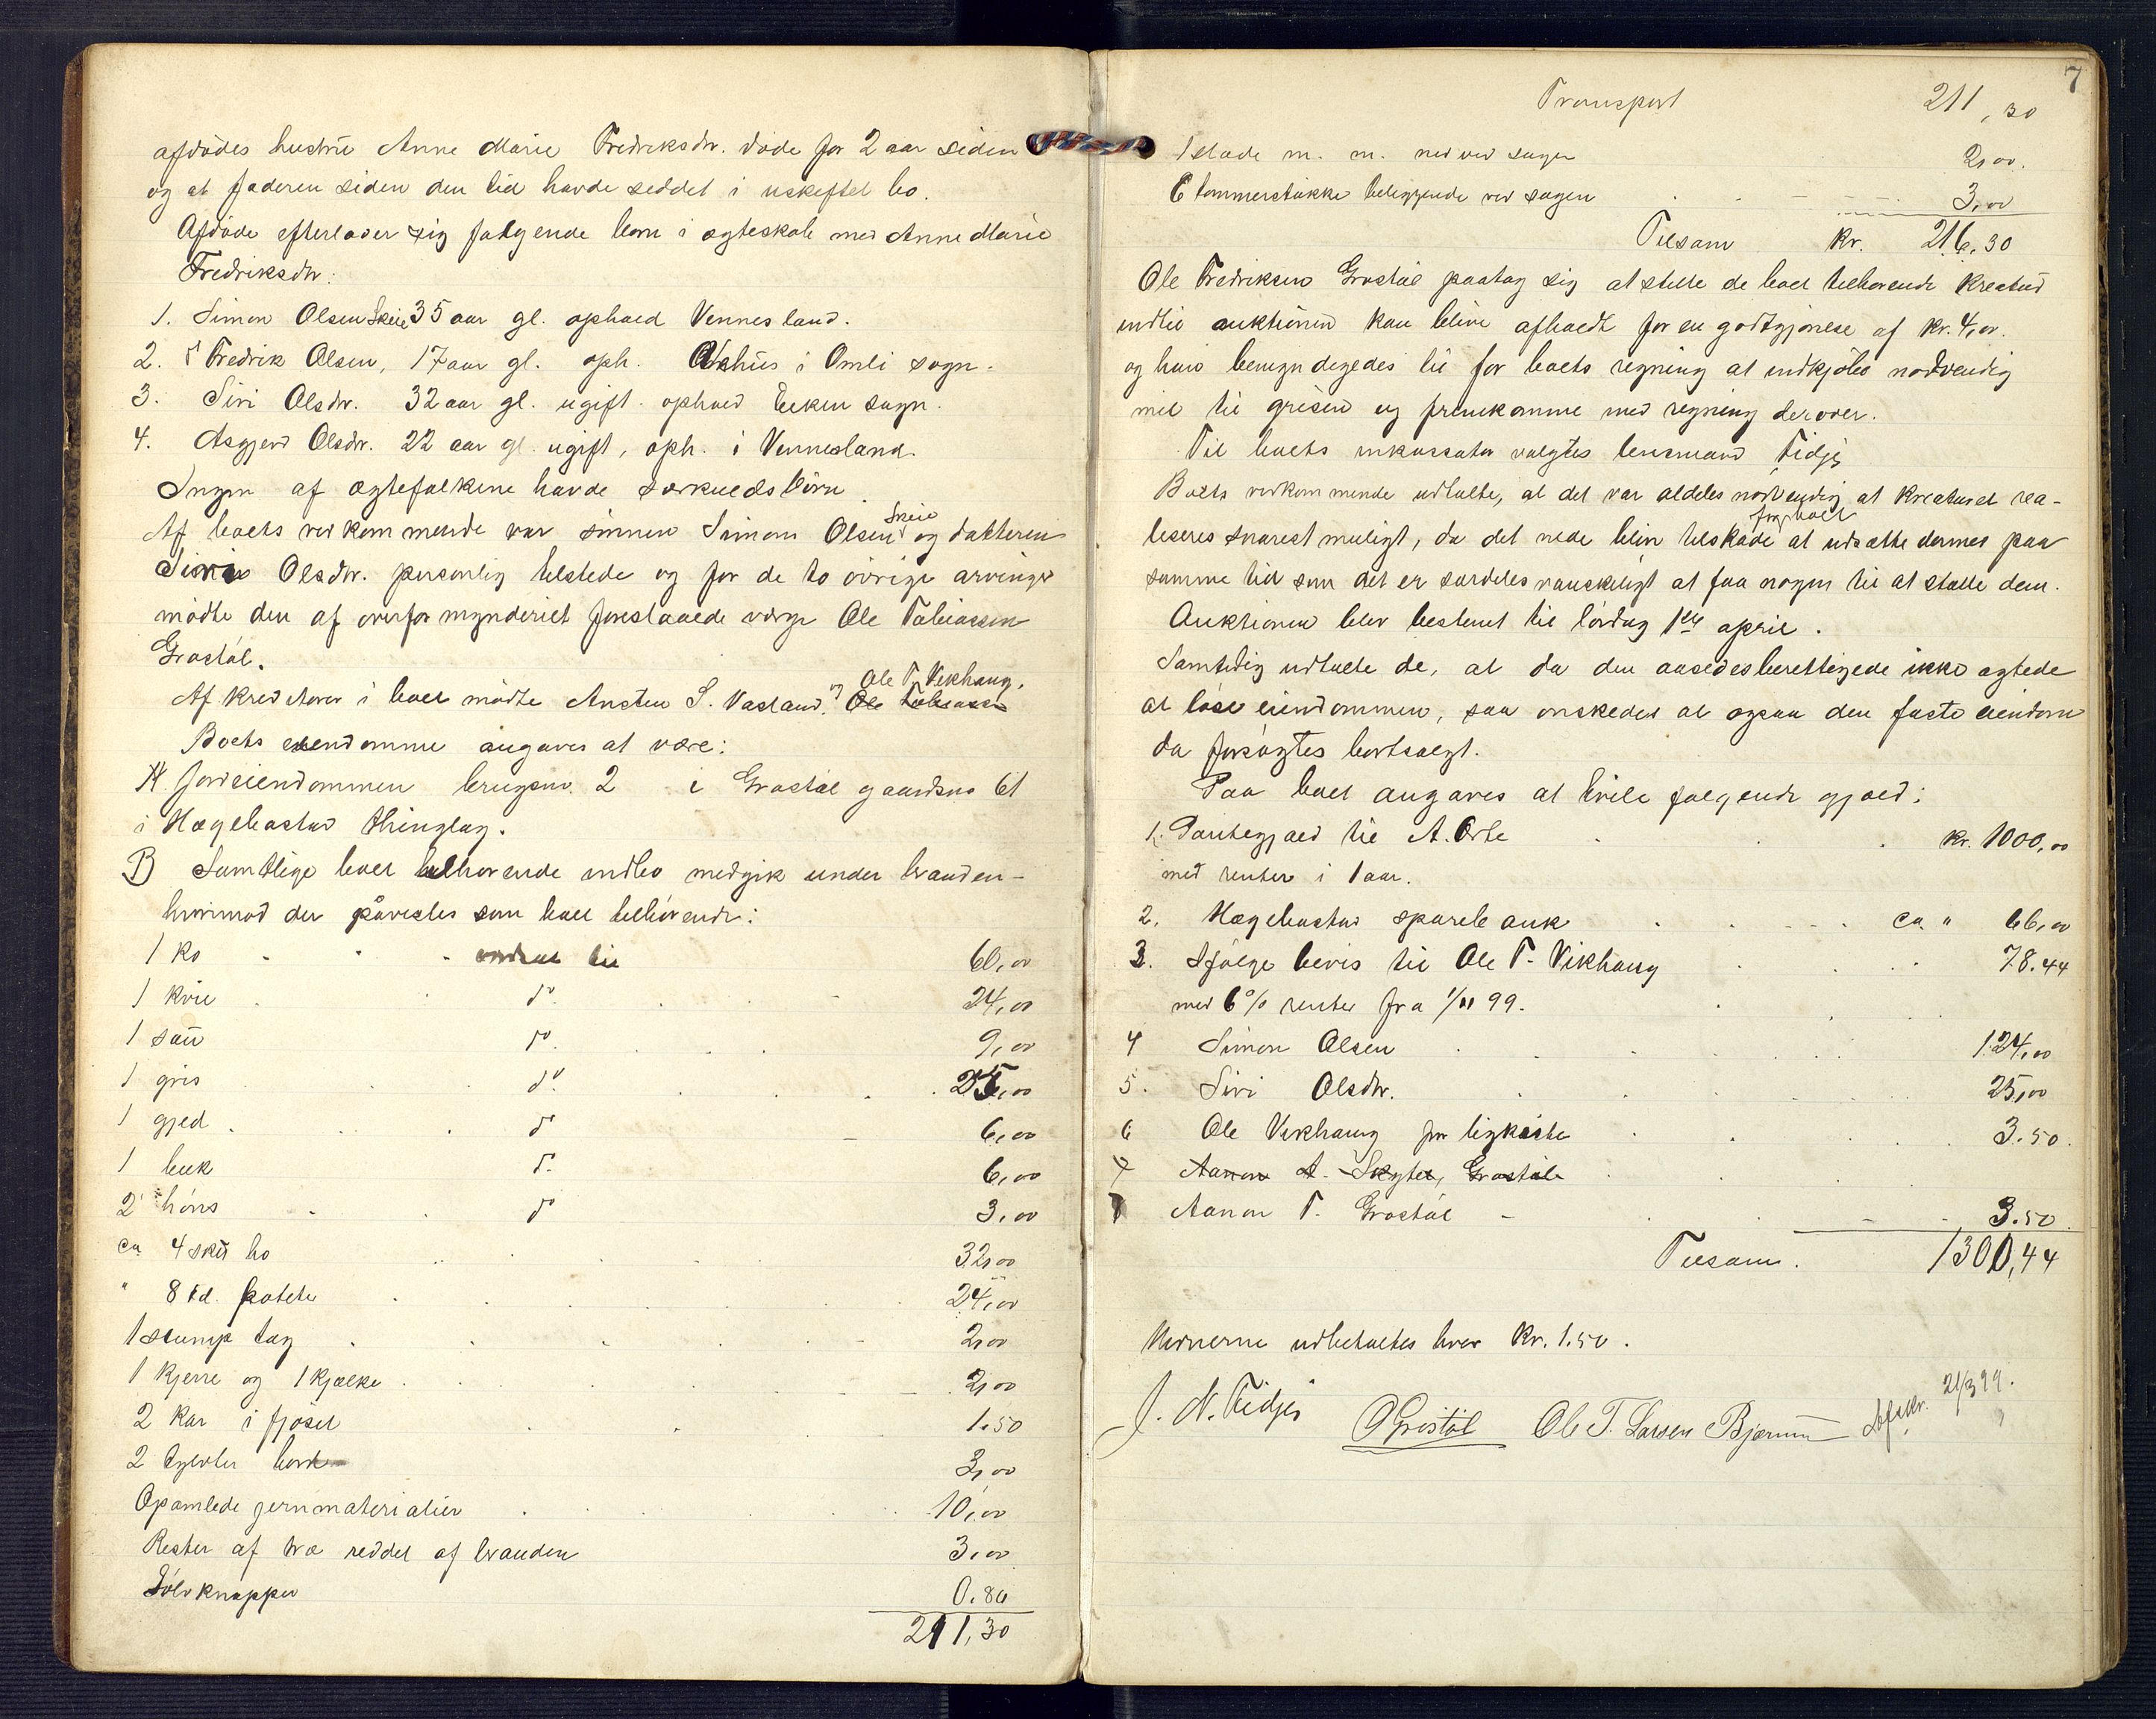 afdødes hustru Anne Marie Fredriksdtr. døde for 2 aar siden
og at faderen siden den tid havde siddet i uskiftet bo.
Afdøde efterlader sig følgende børn i ægteskab med Anne Marie
Fredriksdtr:
1. Simon Olsen Skeie 35 aar gl. ophold Vennesland.
2. Fredrik Olsen, 17 aar gl. oph. i Omli sogn.
3. Siri Olsdtr. 32 aar gl. ugift ophold Eiken sogn.
4. Asgjerd Olsdtr. 22 aar gl. ugift, oph. i Vennesland.
Ingen af ægtefolkene havde særkuldsbørn.
Af boets vedkommende var sønnen Simon Olsen Skeie og datteren
Siri Olsdtr. personlig tilstede og for de to øvrige arvinger
mødte den af overformynderiet foreslaaede værge Ole Tobiassen
Grostøl.
Af kreditorer i boet mødte Ansten S. Vasland og Ole Tobiassen Ole T. Vikhaug.
Boets eiendomme angaves at være:
A. Jordeiendommen brugsno. 2 i Grostøl gaardsno 61
i Hægebostad thinglag.
B) Samtlige boet tilhørende indbo medgik under branden
hvorimod der påvistes som boet tilhørende:
1 ko vurderet til 60,00
1 kvie do. 24,00
1 sau do. 9,00
1 gris do. 25,00
1 gjed do 6,00
1 buk do. 6,00
2 høns do 3,00
ca 4 skit hø 32,00
" 8 td. poteter 24,00
1 stump tøg 2,00
1 kjerre og 1 kjælke 2,00
2 kar i fjøset 1.50
2 tylvter bord 3,00
Opsamlede jernmaterialier 10,00
Rester af træ reddet af branden 3,00
Sølvknapper 0.80
211,30
7
Transport 211,30
1 slæde m. m. ned ved sagen 2,00.
6 tømmerstokke beliggende ved sagen 3,00
Tilsam kr. 216,30
Ole Fredriksen Grostøl paatog sig at stelle de boet tilhørende kreatur
indtil auktionen kan blive afholdt for en godtgjørelse af kr. 4,00.
og ham bemyndigedes til for boets regning at indkjøbe nødvendig
mel til grisen og fremkomme med regning derover.
Til boets inkassator valgtes lensmand Tidjes
Boets vedkommende udtalte, at det var aldeles nødvendig at kreaturet rea-
liseres snarest muligt, da det vilde blive tilskade for boet at udsætte dermed paa
samme tid som det er særdeles vanskeligt at faa nogen til at stelle dem.
Auktionen blev bestemt til lørdag 1ste april.
Samtidig udtalte de, at da den aasedesberettigede ikke agtede
at løse eiendommen, saa ønskedes at ogsaa den faste eiendom
da forsøgtes bortsolgt.
Paa boet angaves at hvile følgende gjæld:
1. Pantegjæld til A. Orte kr. 1000,00
med renter i 1 aar.
2. Hægebostad sparebank ca. " 66,00
3. Ifølge bevis til Ole T. Vikhaug 78.44
med 6% renter fra 1/11 99.
4 Simon Olsen 124,00
5. Siri Olsdtr. 25,00
6 Ole Vikhaug for ligkiste 3.50.
7 Aanon A. Skeytes, Grostøl
7 Aanon T. Grostøl 3.50.
Tilsam. 1300,44
Vidnerne udbetaltes hver kr. 1.50.
J. N. Tidjes O Grostøl Ole T. Larsen Bjørnum Afskr. 21/3 99.